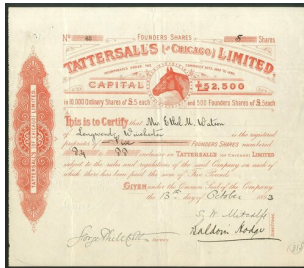 Nº 40 FOUNDERS SHARES 5 Shares
TATTERSALL'S (OF CHICAGO) LIMITED
INCORPORATED UNDER THE COMPANIES ACTS 1862 TO 1890
CAPITAL £52,500
in 10,000 Ordinary Shares of £5 each and 500 Founders Shares of £5 each
This is to Certify that Mrs Ethel M. Watson
is the registered
proprietor of Five FOUNDERS SHARES numbered
inclusive in TATTERSALL'S (OF CHICAGO) LIMITED
subject to the rules and regulations of the said Company on each of
which there has been paid the sum of Five Pounds
GIVEN under the Common Seal of the Company
the 13th day of October 3
TATTERSALL'S (OF CHICAGO) LIMITED